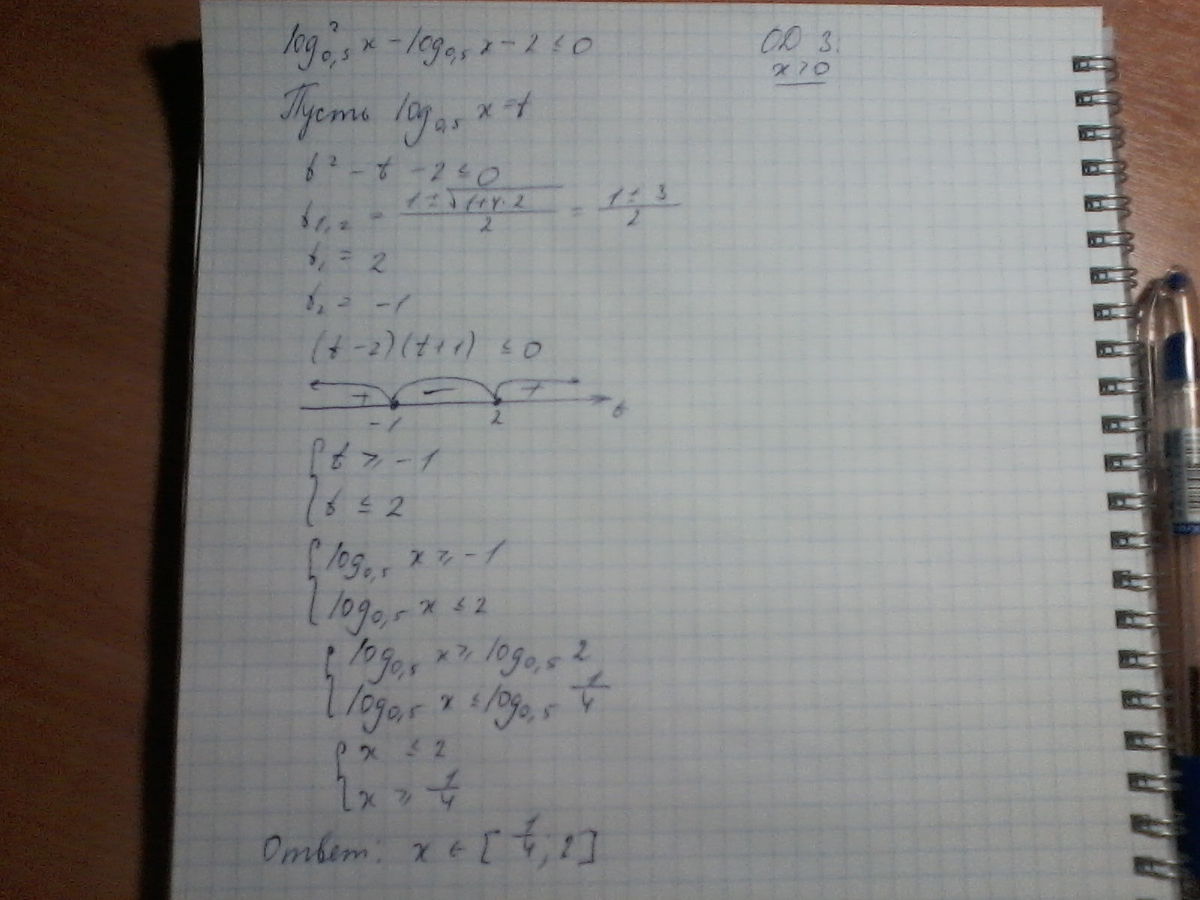 log²₀,₅ x - log₀,₅ x - 2 ≤ 0
ОДЗ:
x > 0
Пусть log₀,₅ x = t
t² - t - 2 ≤ 0
t₁,₂ = (1 ± √(1+4·2))/2 = (1 ± 3)/2
t₁ = 2
t₂ = -1
(t - 2)(t + 1) ≤ 0
+ - +
-1 2 t
{ t ≥ -1
t ≤ 2
{ log₀,₅ x ≥ -1
log₀,₅ x ≤ 2
{ log₀,₅ x ≥ log₀,₅ 2
log₀,₅ x ≤ log₀,₅ 1/4
{ x ≤ 2
x ≥ 1/4
Ответ: x ∈ [1/4; 2]